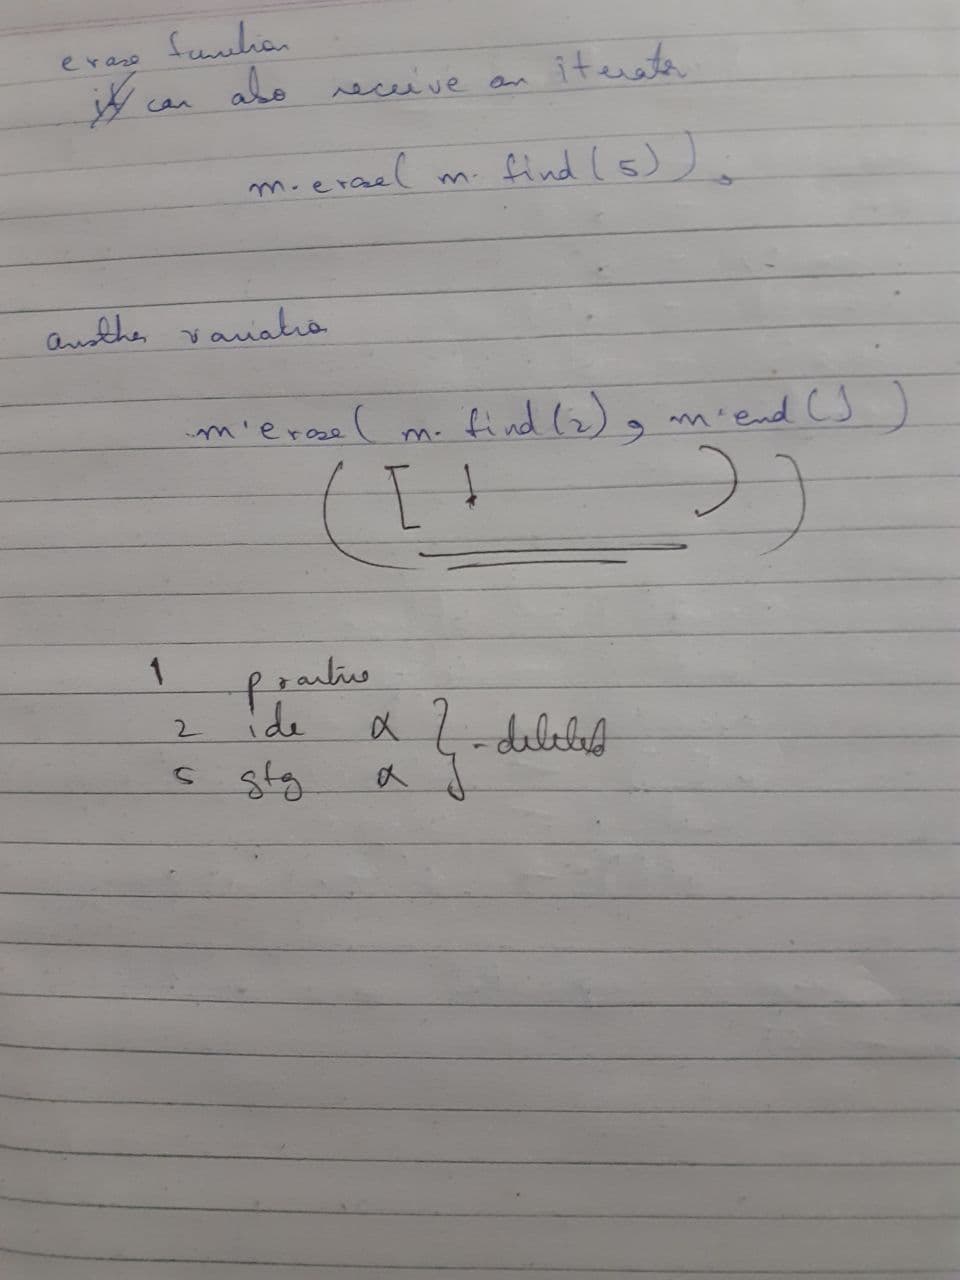 erase function
it can also receive an iterator
m.erase( m. find (5)) ;
another variation
m.erase( m. find (2) , m.end () )
( [ ) )
1 practice
2 ide x } - deleted
5 gfg x